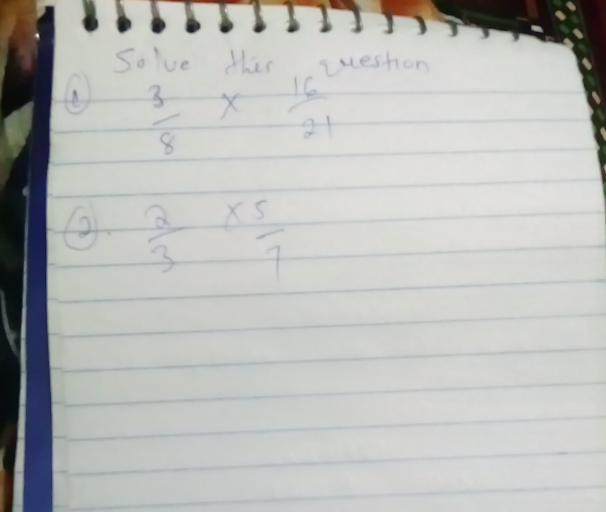 Solve this question
① 3/8 × 16/21
②. 2/3 × 5/7